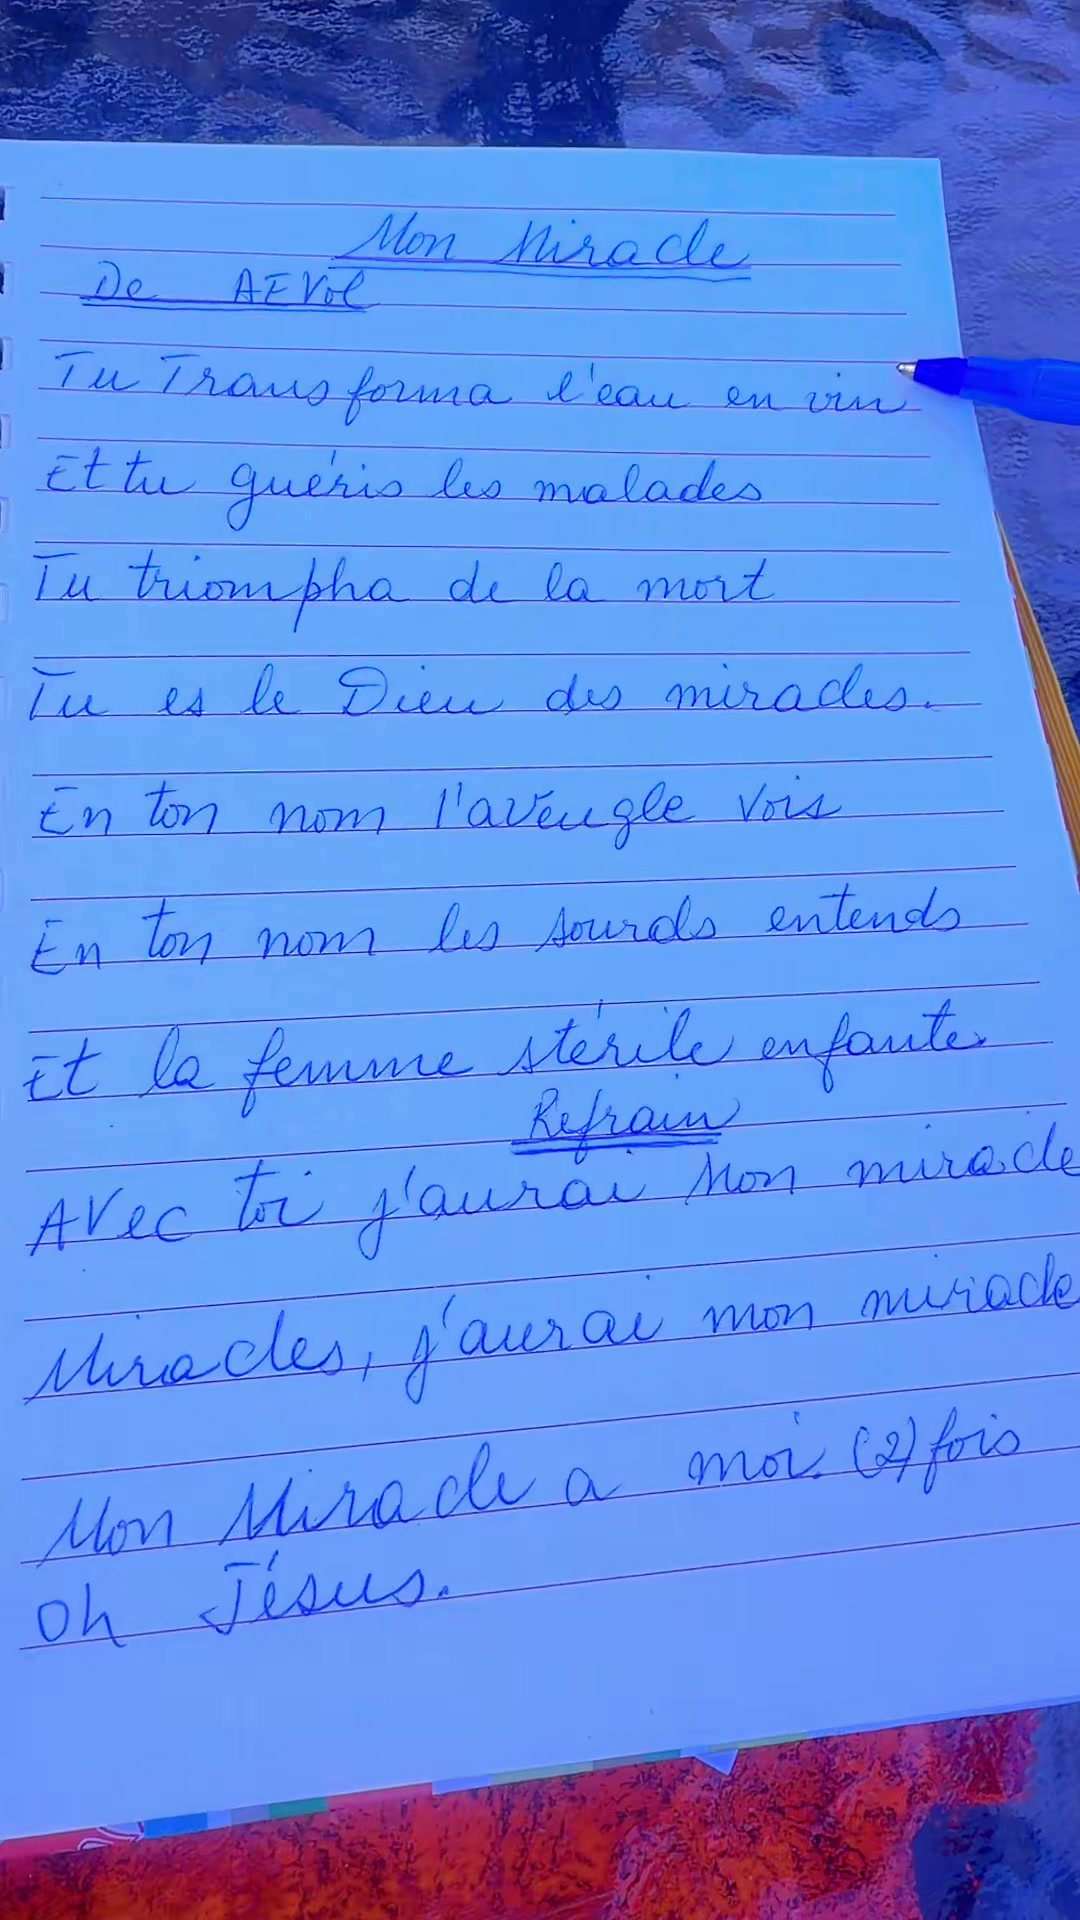 Mon Miracle
De AEVol
Tu Transforma l'eau en vin
Et tu guéris les malades
Tu triompha de la mort
Tu es le Dieu des miracles.
En ton nom l'aveugle vois
En ton nom les sourds entends
Et la femme stérile enfante.
Refrain
Avec toi j'aurai Mon miracle
Miracles, j'aurai mon miracle
Mon Miracle a moi. (2) fois
Oh Jésus.